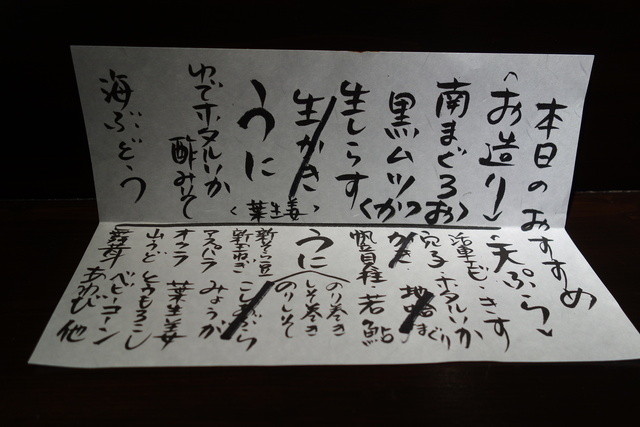 本日のおすすめ
〈お造り〉
南まぐろ
黒ムツ
生しらす
生がき
うに
〈葉生姜〉
ゆでホタルいか
酢みそ
海ぶどう
〈天ぷら〉
活車えび・きす
穴子・ホタルいか
帆立貝柱 若鮎
うに
のり巻き
しそ巻き
のりしそ
新そら豆
新玉ねぎ こしあぶら
アスパラ みょうが
オクラ 葉生姜
山うど とうもろこし
舞茸 ベビーコーン
あわび 他